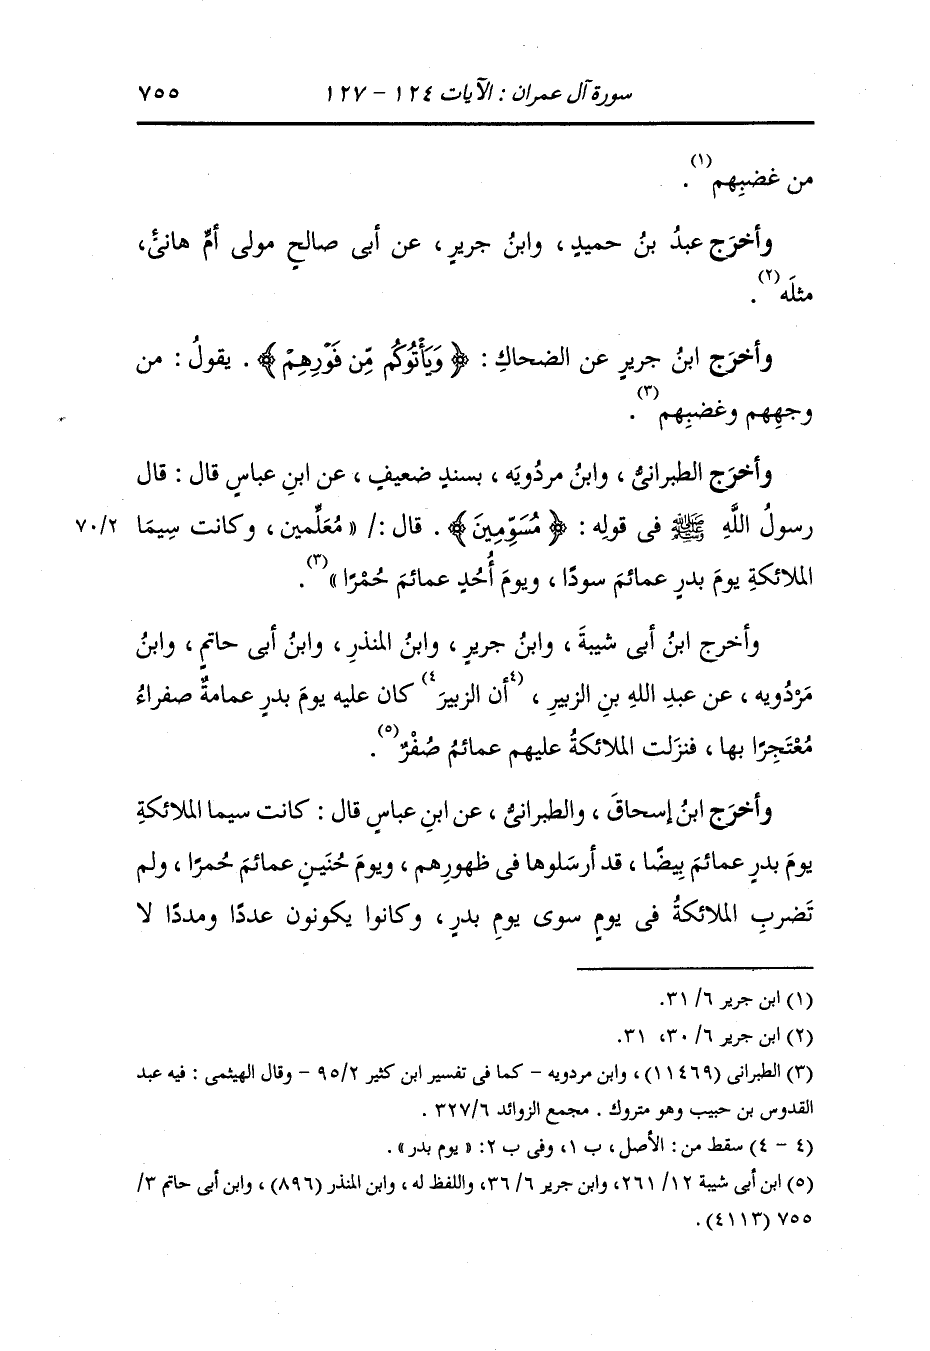 سورة آل عمران : الآيات ١٢٤ - ١٢٧ ٧٥٥
من غضبِهم(١) .
وأخرَج عبدُ بنُ حميدٍ ، وابنُ جريرٍ ، عن أبى صالحٍ مولى أمِّ هانئً ،
مثلَه(٢) .
وأخرَج ابنُ جريرٍ عن الضحاكِ : ﴿ وَيَأْتُوكُم مِّن فَوْرِهِمْ ﴾ . يقولُ : من
وجهِهم وغضبِهم(٣) .
وأخرَج الطبرانىُّ ، وابنُ مردُويَه ، بسندٍ ضعيفٍ ، عن ابنِ عباسٍ قال : قال
رسولُ اللَّهِ ﷺ فى قولِه : ﴿ مُسَوِّمِينَ ﴾ . قال :/ « مُعَلِّمين ، وكانت سِيمَا ٧٠/٢
الملائكةِ يومَ بدرٍ عمائمَ سودًا ، ويومَ أُحُدٍ عمائمَ حُمْرًا »(٣) .
وأخرج ابنُ أبى شيبةَ ، وابنُ جريرٍ ، وابنُ المنذرِ ، وابنُ أبى حاتمٍ ، وابنُ
مَرْدُويه ، عن عبدِ اللهِ بنِ الزبيرِ ، (٤أن الزبيرَ٤) كان عليه يومَ بدرٍ عمامةٌ صفراءُ
مُعْتَجِرًا بها ، فنزَلت الملائكةُ عليهم عمائمُ صُفْرٌ(٥) .
وأخرَج ابنُ إسحاقَ ، والطبرانىُّ ، عن ابنِ عباسٍ قال : كانت سيما الملائكةِ
يومَ بدرٍ عمائمَ بِيضًا ، قد أرسَلوها فى ظهورِهم ، ويومَ حُنَينٍ عمائمَ حُمرًا ، ولم
تَضربِ الملائكةُ فى يومٍ سوى يومِ بدرٍ ، وكانوا يكونون عددًا ومددًا لا
(١) ابن جرير ٦/ ٣١.
(٢) ابن جرير ٦/ ٣٠، ٣١.
(٣) الطبرانى (١١٤٦٩) ، وابن مردويه - كما فى تفسير ابن كثير ٩٥/٢ - وقال الهيثمى : فيه عبد
القدوس بن حبيب وهو متروك . مجمع الزوائد ٣٢٧/٦ .
(٤ - ٤) سقط من : الأصل ، ب ١، وفى ب ٢: « يوم بدر» .
(٥) ابن أبى شيبة ١٢/ ٢٦١، وابن جرير ٦/ ٣٦، واللفظ له ، وابن المنذر (٨٩٦) ، وابن أبى حاتم ٣/
٧٥٥ (٤١١٣) .